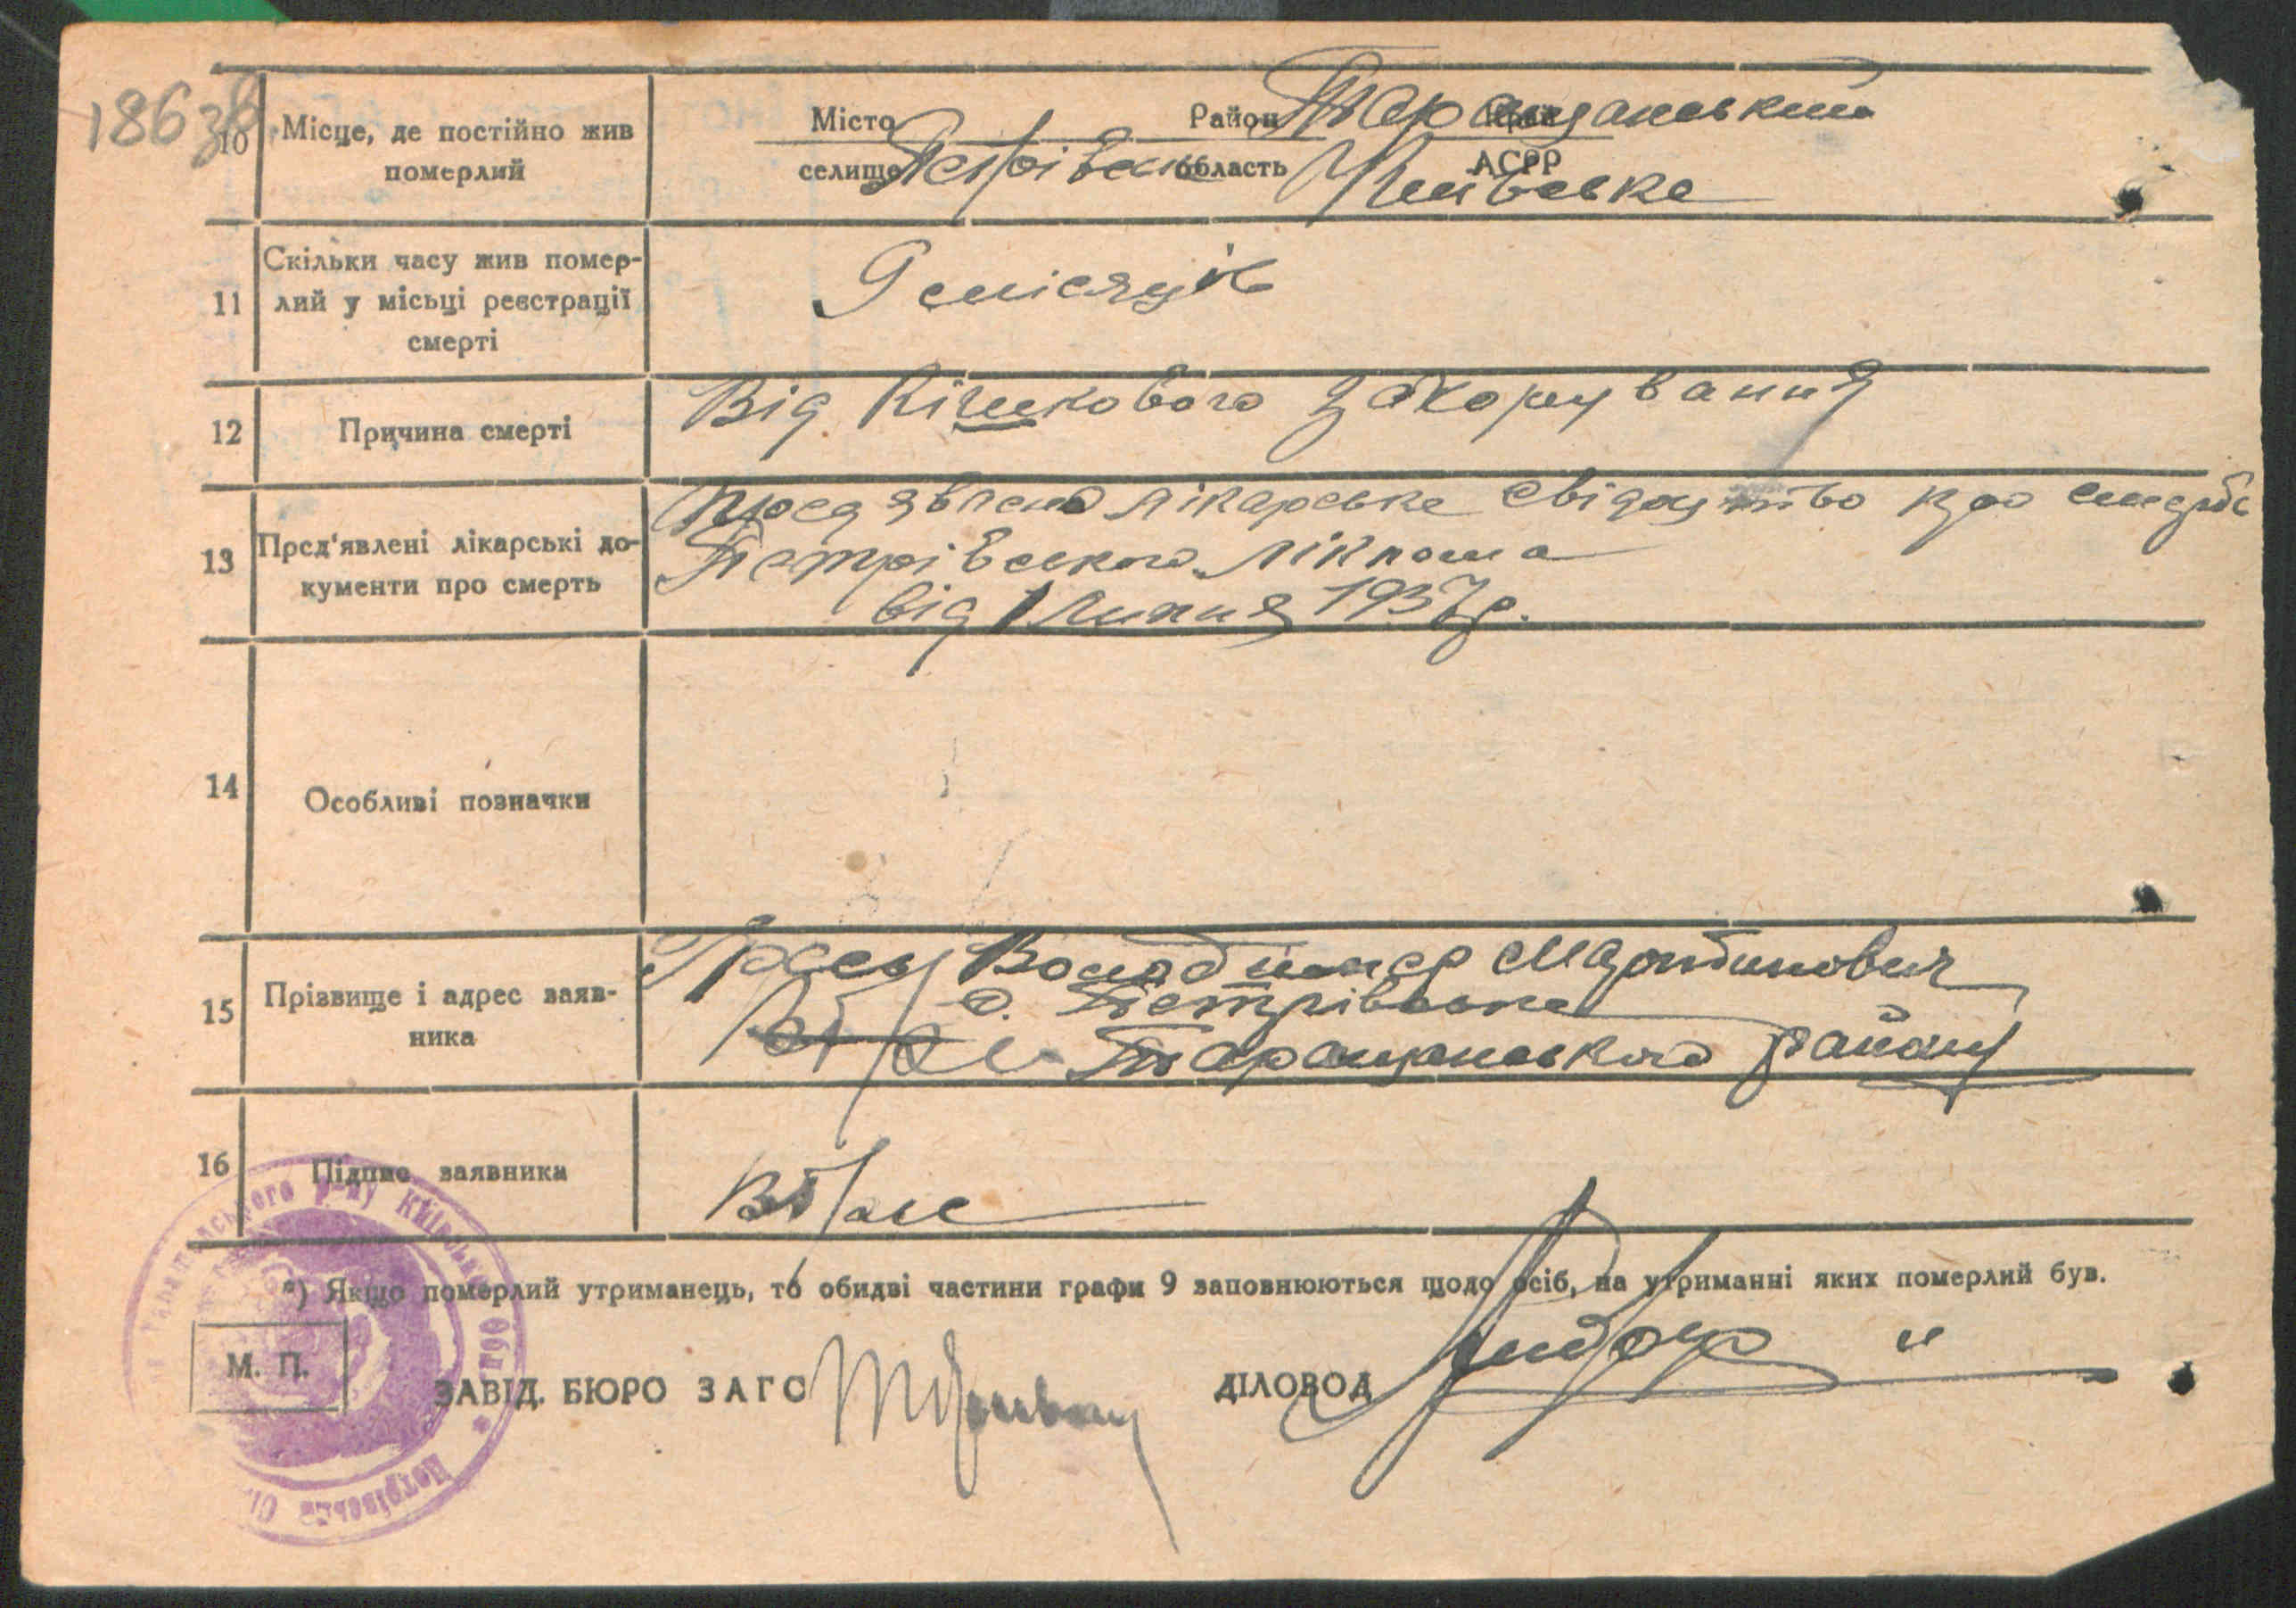 186 зв
10 Місце, де постійно жив померлий
Місто Район Таращанський Край
селище Петрівське область Київське АСРР
11 Скільки часу жив помер-
лий у місьці реєстрації
смерті
9 місяців
12 Причина смерті
Від Кішкового
13 Пред'явлені лікарські до-
кументи про смерть
Предявлено лікарське свідоцтво про смерть
Петрівського
від 1 липня 1937 р.
14 Особливі позначки
15 Прізвище і адрес заяв-
ника
Володимер Мартинович
с. Петрівське
Таращанського району
16 Підпис заявника
*) Якщо померлий утриманець, то обидві частини графи 9 заповнюються щодо осіб, на утриманні яких померлий був.
М. П.
ЗАВІД. БЮРО ЗАГС
ДІЛОВОД